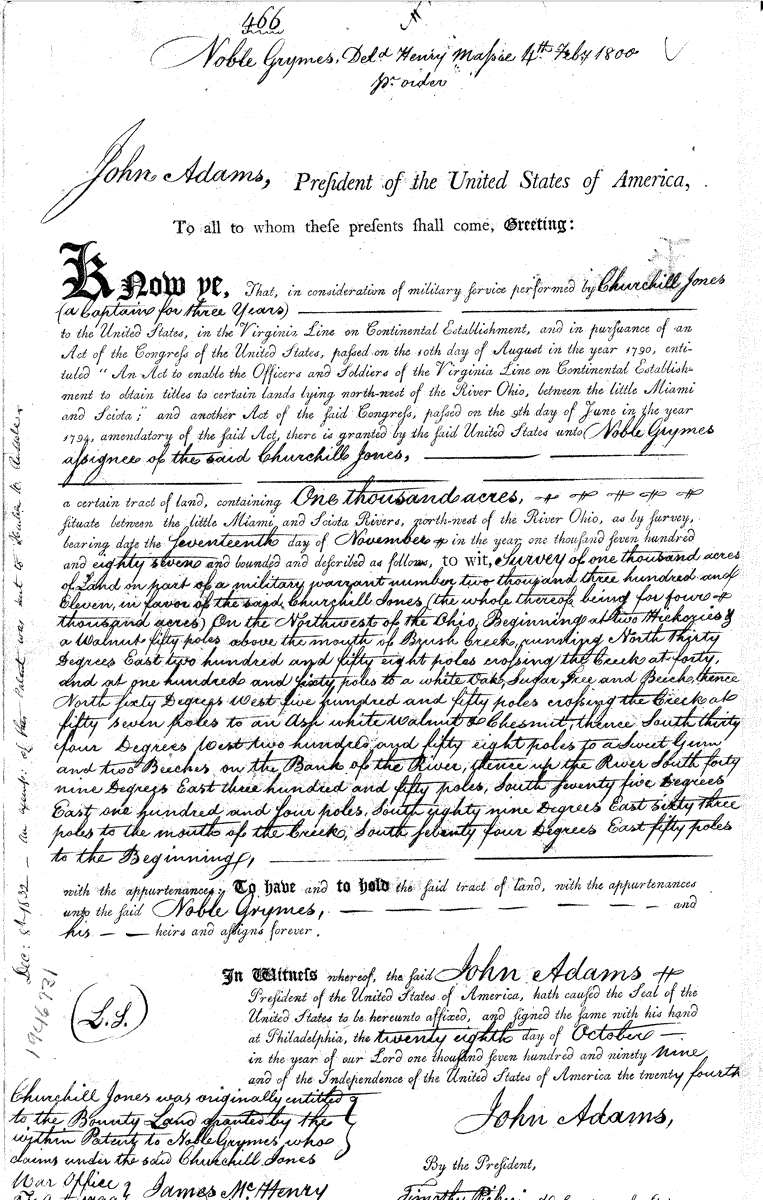 466
Noble Grymes. Deld Henry Massie 4th Feby 1800
pr order
John Adams, President of the United States of America,
To all to whom these presents shall come, Greeting:
Know ye, That, in consideration of military service performed by Churchill Jones
(a Captain for three Years)
to the United States, in the Virginia Line on Continental Establishment, and in pursuance of an
Act of the Congress of the United States, passed on the 10th day of August in the year 1790, enti-
tuled "An Act to enable the Officers and Soldiers of the Virginia Line on Continental Establish-
ment to obtain titles to certain lands lying north-west of the River Ohio, between the little Miami
and Sciota;" and another Act of the said Congress, passed on the 9th day of June in the year
1794, amendatory of the said Act, there is granted by the said United States unto Noble Grymes
assignee of the said Churchill Jones,
a certain tract of land, containing One thousand acres,
situate between the little Miami and Sciota Rivers, north-west of the River Ohio, as by survey,
bearing date the Seventeenth day of November in the year one thousand seven hundred
and eighty seven and bounded and described as follows, to wit, Survey of one thousand acres
of Land on part of a military warrant number two thousand three hundred and
Eleven, in favor of the said Churchill Jones (the whole thereof being for four
thousand acres) On the Northwest of the Ohio, Beginning at two Hickories &
a Walnut fifty poles above the mouth of Brush Creek, running North thirty
Degrees East two hundred and fifty eight poles crossing the Creek at forty,
and at one hundred and sixty poles to a white Oak, Sugar Tree and Beech, thence
North sixty Degrees West five hundred and fifty poles crossing the Creek at
fifty seven poles to an Ash white Walnut & Chesnut, thence South thirty
four Degrees West two hundred and fifty eight poles to a Sweet Gum
and two Beeches on the Bank of the River, thence up the River South forty
nine Degrees East three hundred and fifty poles, South seventy five Degrees
East one hundred and four poles, South eighty nine Degrees East sixty three
poles to the mouth of the Creek, South seventy four Degrees East fifty poles
to the Beginning,
with the appurtenances; To have and to hold the said tract of land, with the appurtenances
unto the said Noble Grymes, and
his heirs and assigns forever.
In Witness whereof, the said John Adams
President of the United States of America, hath caused the Seal of the
United States to be hereunto affixed, and signed the same with his hand
at Philadelphia, the twenty eighth day of October
in the year of our Lord one thousand seven hundred and ninety nine
and of the Independence of the United States of America the twenty fourth
(L.S.)
John Adams,
By the President,
Churchill Jones was originally entitled
to the Bounty Land granted by the
within Patent to Noble Grymes who
claims under the said Churchill Jones
War Office
James McHenry
Dec: 8th 1832 - an exemp. of this Patent was sent to
1946931